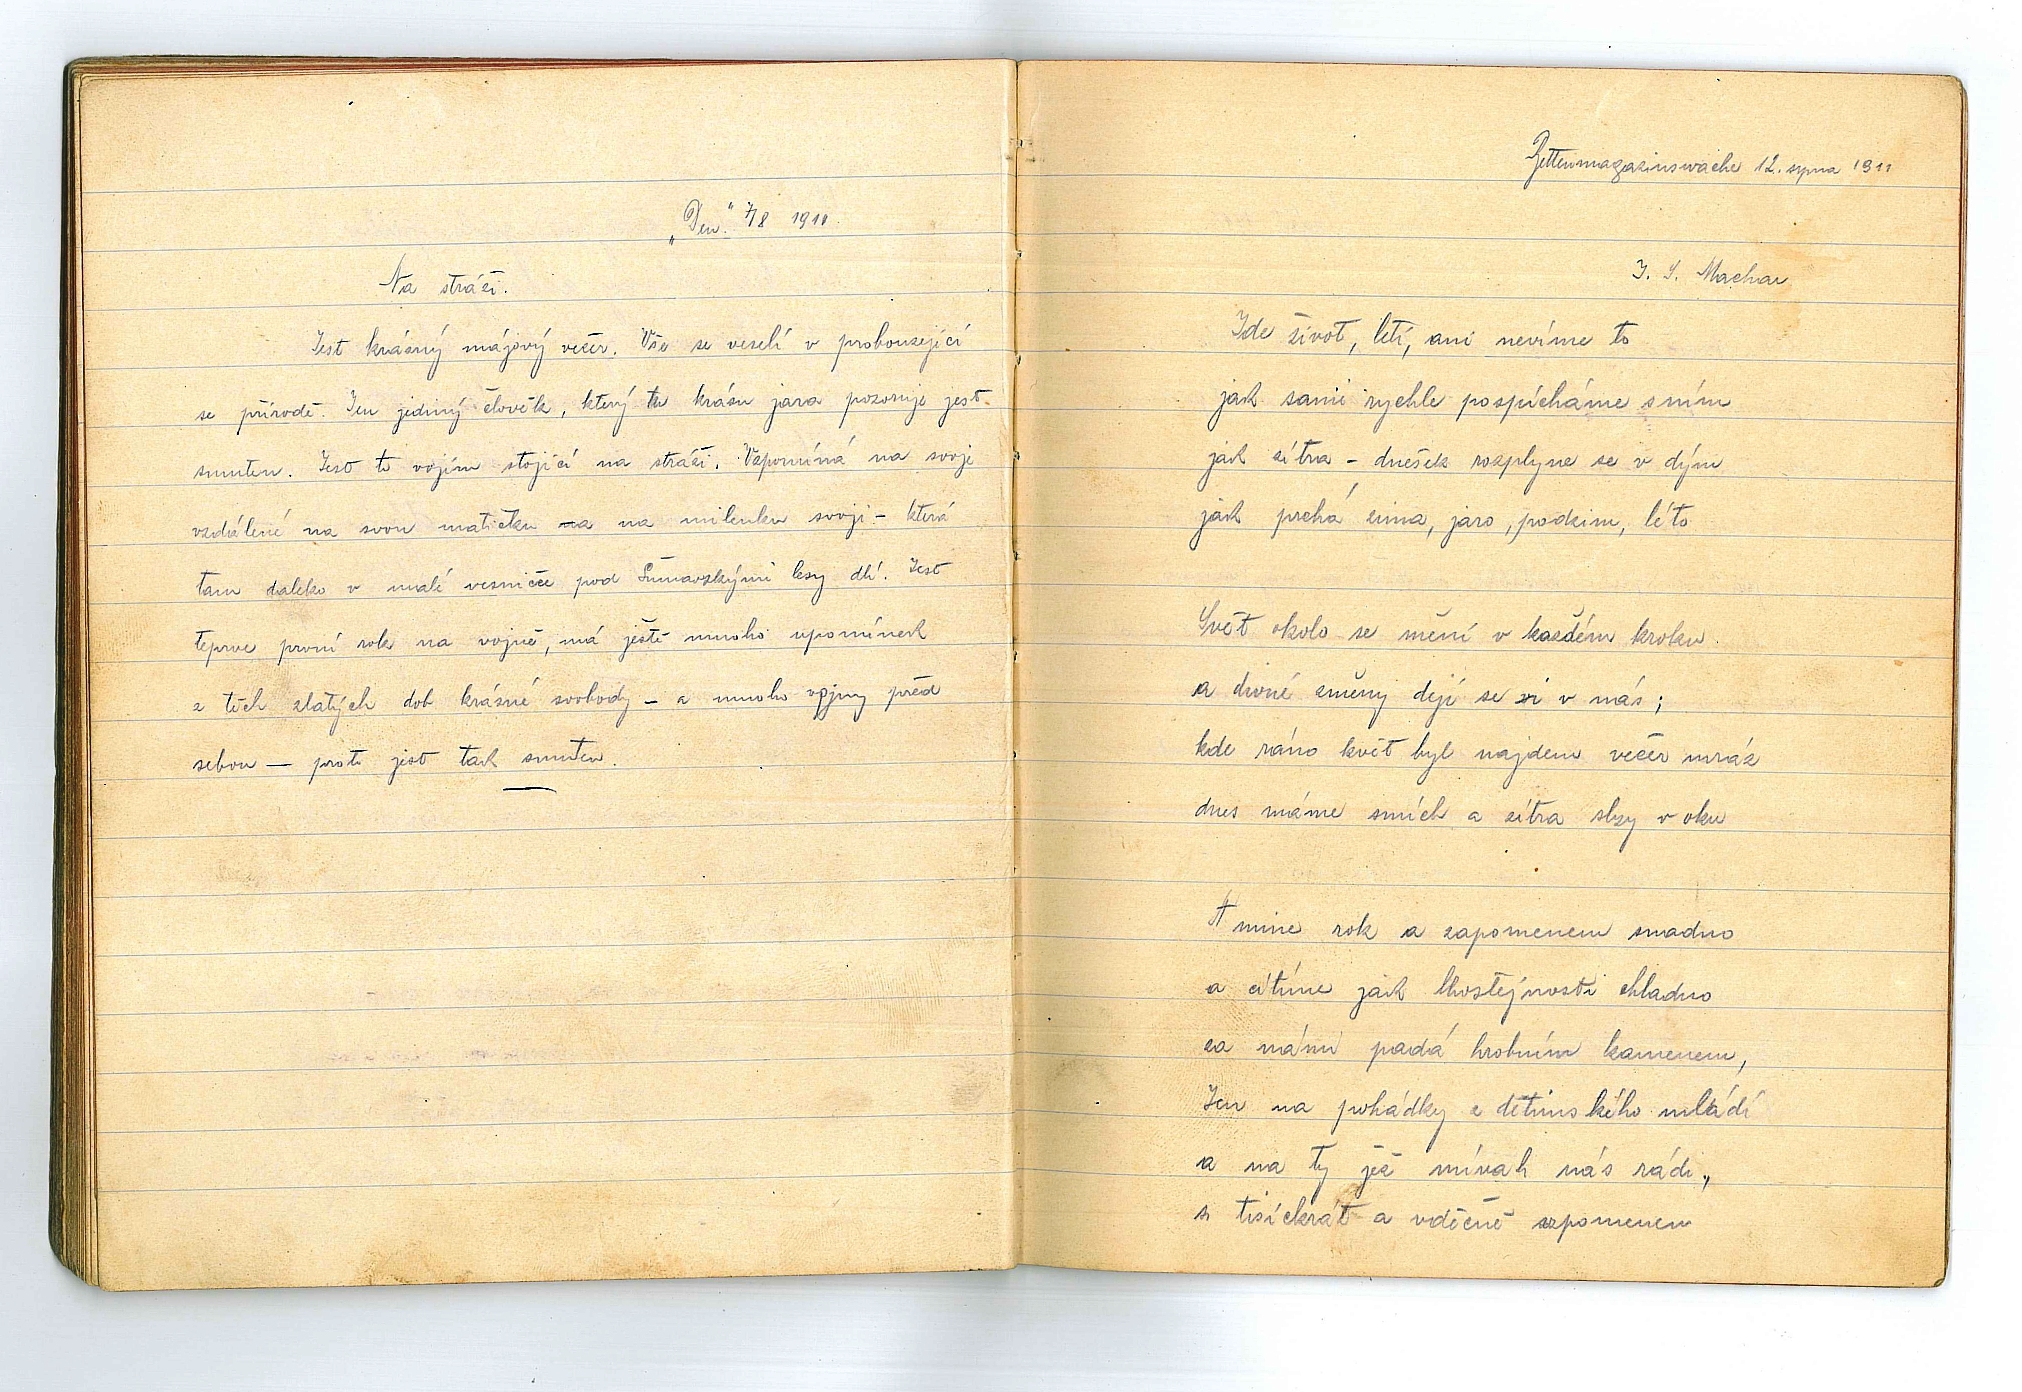 „Den“ 7/8 1911.
Na stráži.
Jest krásný májový večer. Vše se veselí v probouzející
se přírodě. Jen jediný člověk, který tu krásu jara pozoruje jest
smuten. Jest to vojín stojící na stráži. Vzpomíná na svoje
vzdálené na svou matičku a na milenku svoji – která
tam daleko v malé vesničce pod Šumavskými lesy dlí. Jest
teprve první rok na vojně, má ještě mnoho upomínek
z těch zlatých dob krásné svobody – a mnoho vojny před
sebou — proto jest tak smuten.
Bettenmagazinswache 12. srpna 1911
J. S. Machar
Jde život, letí, ani nevíme to
jak sami rychle pospícháme s ním
jak zítra – dnešek rozplyne se v dým
jak prchá zima, jaro, podzim, léto
Svět okolo se mění v každém kroku.
a divné změny dějí se i v nás;
kde ráno květ byl najdem večer mráz
dnes máme smích a zítra slzy v oku
A mine rok a zapomenem snadno
a cítíme jak lhostejnosti chladno
za námi padá hrobním kamenem,
Jen na pohádky z dětinského mládí
a na ty jež mívali nás rádi,
si tisíckrát a vděčně vzpomenem